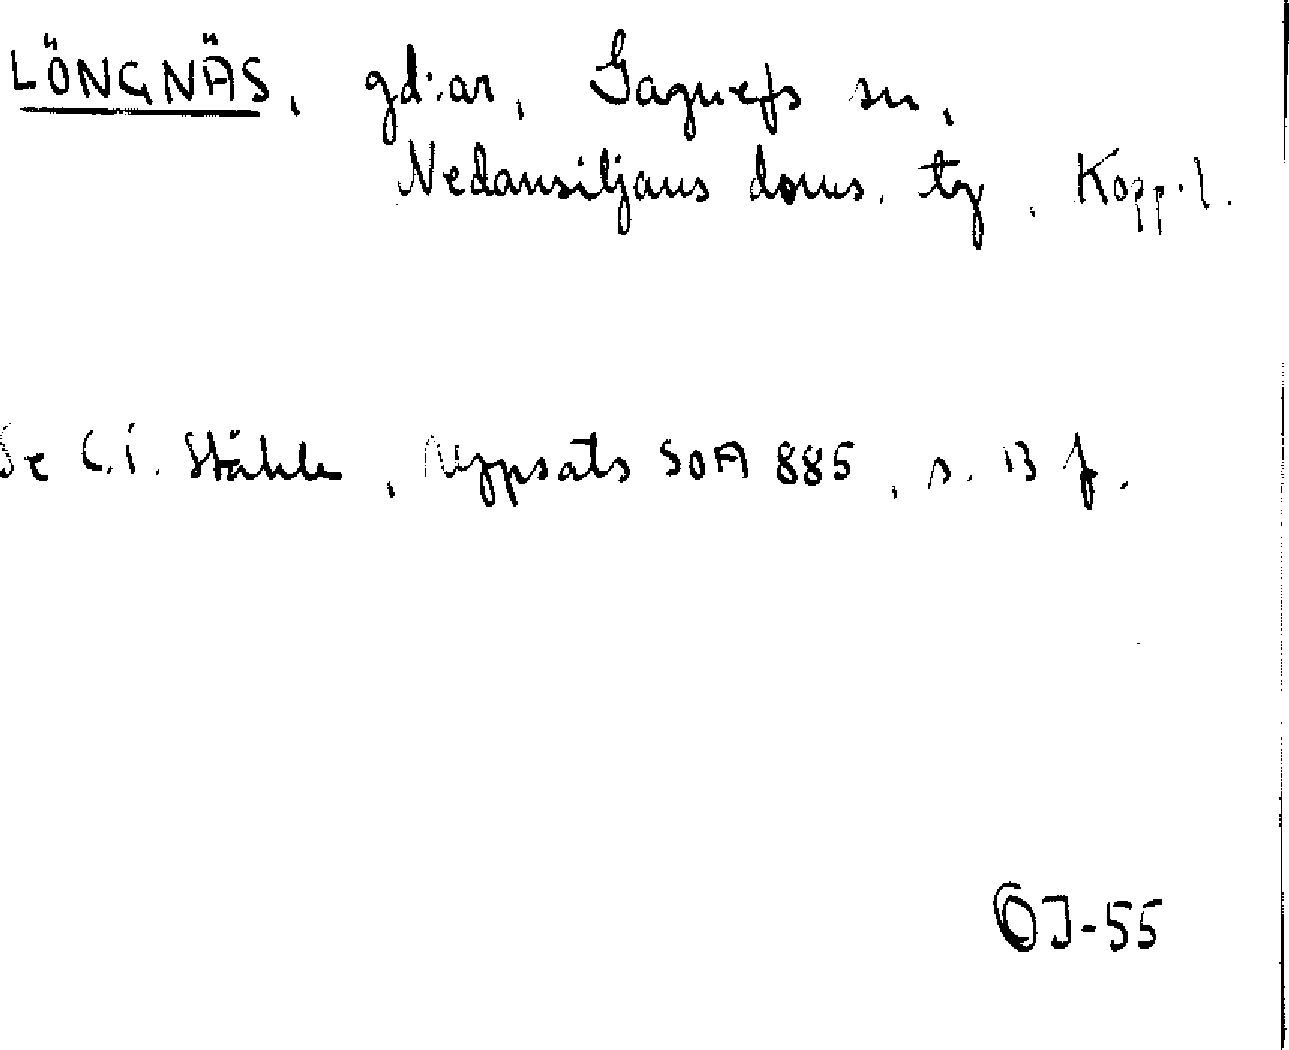 LÖNGNÄS, gd:ar, Gagnefs sn,
Nedansiljans doms. tg, Kopp.l.
Se C.I. Ståhle, Uppsats SOA 885, s. 13 f.
OJ-55